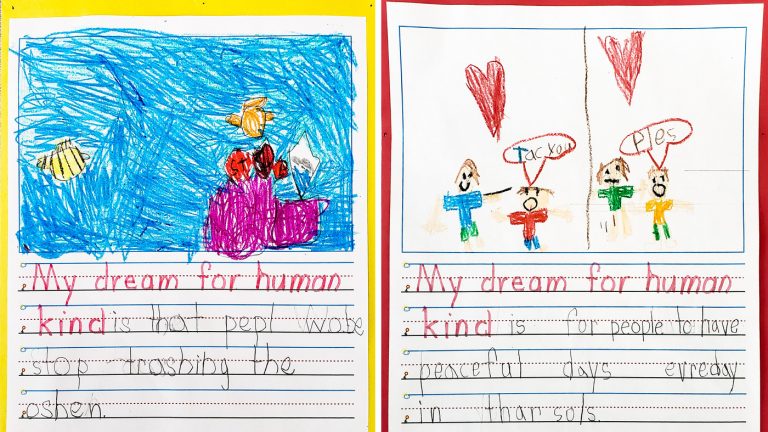 My dream for human
kind is that pepl Wobe
stop trashing the
oshen.
Tac you
Ples
My dream for human
kind is for people to have
peaceful days evreday
in thar sols.